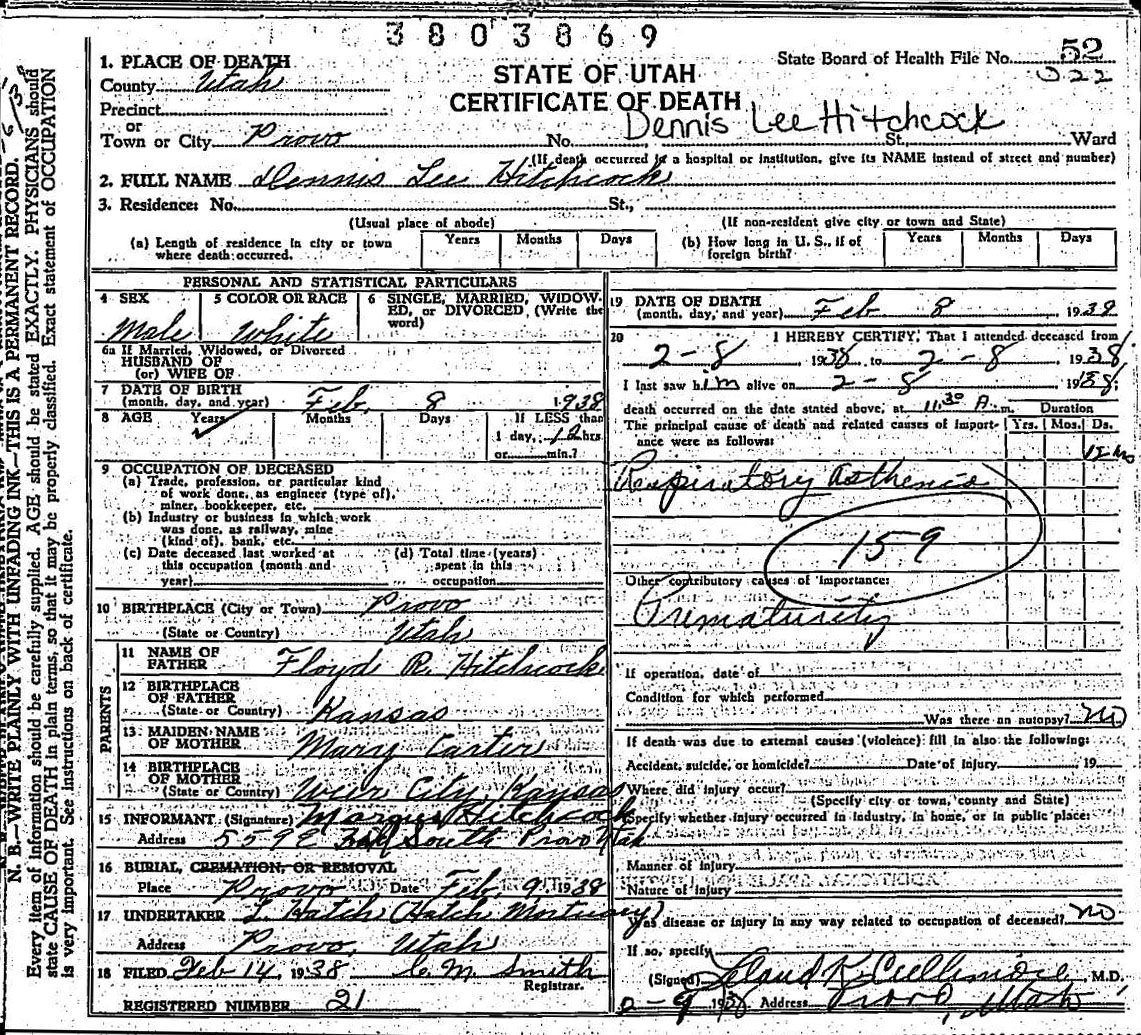 3803869
State Board of Health File No. 52
022
1. PLACE OF DEATH
County Utah
STATE OF UTAH
CERTIFICATE OF DEATH
Precinct
or
Town or City Provo No. Dennis Lee Hitchcock St., Ward
(If death occurred in a hospital or institution, give its NAME instead of street and number)
2. FULL NAME Dennis Lee Hitchcock
3. Residence: No. St.,
(Usual place of abode) (If non-resident give city or town and State)
(a) Length of residence in city or town where death occurred. Years Months Days
(b) How long in U. S., if of foreign birth? Years Months Days
PERSONAL AND STATISTICAL PARTICULARS
4 SEX Male
5 COLOR OR RACE White
6 SINGLE, MARRIED, WIDOWED, or DIVORCED, (Write the word)
6a If Married, Widowed, or Divorced
HUSBAND OF
(or) WIFE OF
7 DATE OF BIRTH
(month, day, and year) Feb, 8 1938
8 AGE Years Months Days If LESS than
1 day, 12 hrs
or min.?
9 OCCUPATION OF DECEASED
(a) Trade, profession, or particular kind
of work done, as engineer (type of),
miner, bookkeeper, etc.
(b) Industry or business in which work
was done, as railway, mine
(kind of), bank, etc.
(c) Date deceased last worked at
this occupation (month and
year)
(d) Total time (years)
spent in this
occupation
10 BIRTHPLACE (City or Town) Provo
(State or Country) Utah
PARENTS
11 NAME OF
FATHER Floyd R. Hitchcock
12 BIRTHPLACE
OF FATHER
(State or Country) Kansas
13 MAIDEN NAME
OF MOTHER Mary Carter
14 BIRTHPLACE
OF MOTHER
(State or Country) Weir City, Kansas
15 INFORMANT (Signature) Hitchcock
Address South Provo Utah
16 BURIAL, CREMATION, OR REMOVAL
Place Provo Date Feb, 9, 1938
17 UNDERTAKER Hatch Hatch Mortuary
Address Provo, Utah
18 FILED Feb 14, 1938 C. M. Smith
Registrar.
REGISTERED NUMBER 21
19 DATE OF DEATH
(month, day, and year) Feb 8, 1938
20 I HEREBY CERTIFY, That I attended deceased from
2-8 1938, to 2-8 1938
I last saw him alive on 2-8 1938;
death occurred on the date stated above, at 11:30 A.m. Duration
The principal cause of death and related causes of importance were as follows: Yrs. Mos. Ds.
Respiratory Asthenia
159
Other contributory causes of importance:
Prematurity
If operation, date of
Condition for which performed
Was there an autopsy? no
If death was due to external causes (violence) fill in also the following:
Accident, suicide, or homicide? Date of injury 19
Where did injury occur?
(Specify city or town, county and State)
Specify whether injury occurred in industry, in home, or in public place:
Manner of injury
Nature of injury
Was disease or injury in any way related to occupation of deceased? no
If so, specify
(Signed) Claud K. Cullimore M.D.
2-9 1938 Address Provo, Utah
N. B.—WRITE PLAINLY WITH UNFADING INK—THIS IS A PERMANENT RECORD.
Every item of information should be carefully supplied. AGE should be stated EXACTLY. PHYSICIANS should
state CAUSE OF DEATH in plain terms, so that it may be properly classified. Exact statement of OCCUPATION
is very important. See instructions on back of certificate.